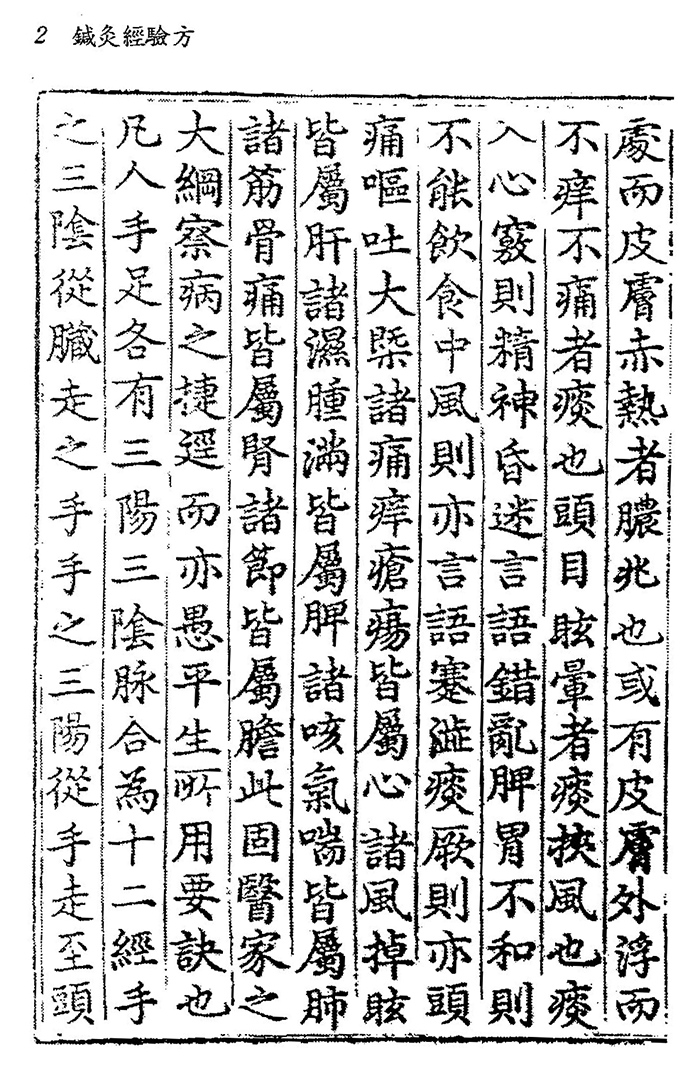 2 鍼灸經驗方
處而皮膚赤熱者膿兆也或有皮膚外浮而
不痒不痛者痰也頭目眩暈者痰挾風也痰
入心竅則精神昏迷言語錯亂脾胃不和則
不能飮食中風則亦言語蹇澁痰厥則亦頭
痛嘔吐大槩諸痛痒瘡瘍皆屬心諸風掉眩
皆屬肝諸濕腫滿皆屬脾諸咳氣喘皆屬肺
諸筋骨痛皆屬腎諸節皆屬膽此固醫家之
大綱察病之捷逕而亦愚平生所用要訣也
凡人手足各有三陽三陰脉合為十二經手
之三陰從臟走之手手之三陽從手走至頭